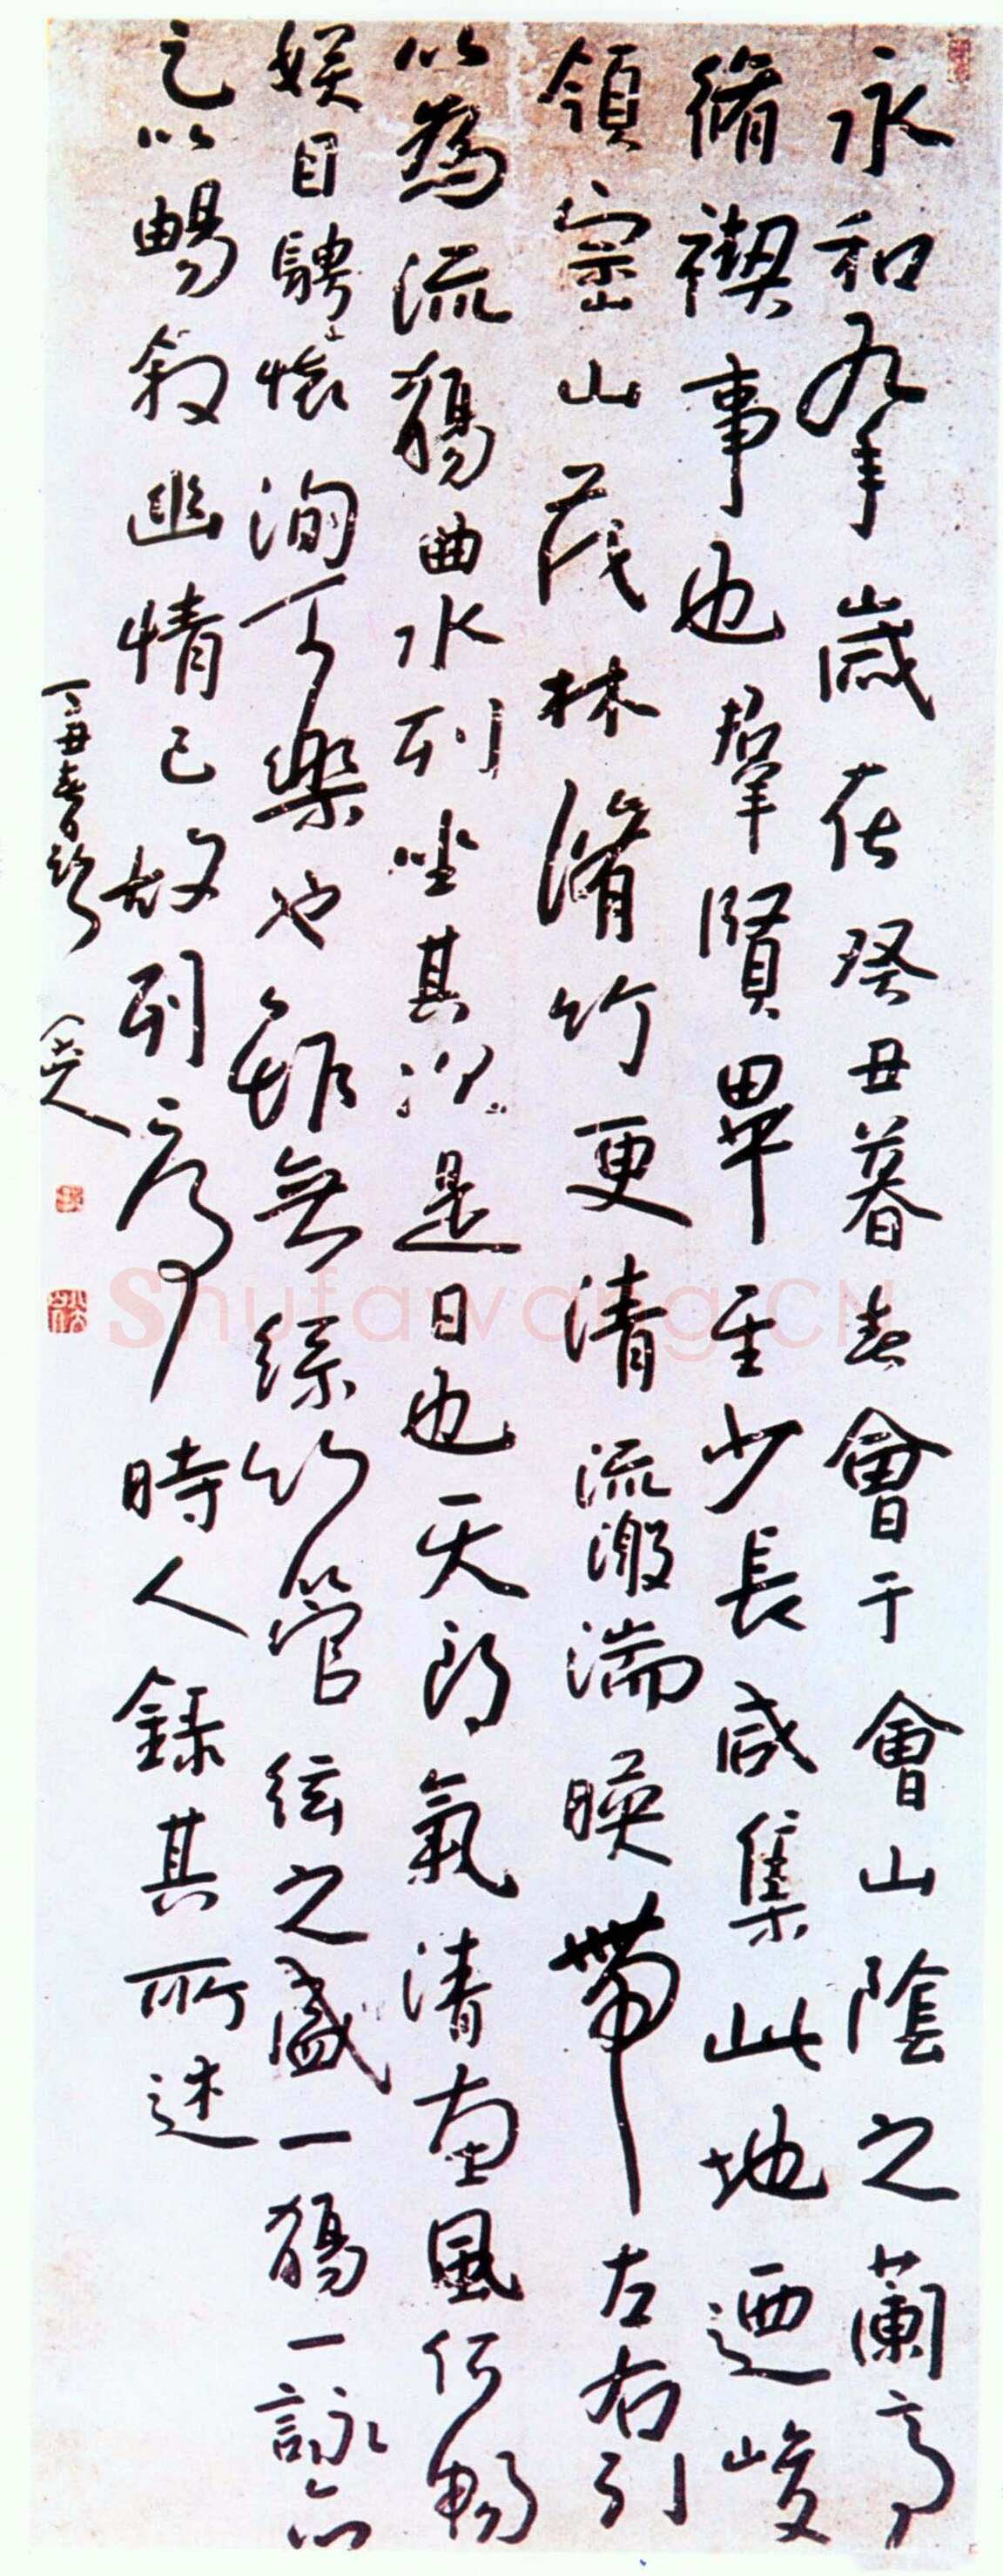 永和九年歲在癸丑暮春會于會山陰之蘭亭
脩禊事也羣賢畢至少長咸集此地迺峻
領崇山茂林脩竹更清流激湍暎帶左右引
以為流觴曲水列坐其次是日也天朗氣清惠風和暢
娛目騁懷洵可樂也雖無絲竹管絃之盛一觴一詠亦
足以暢敘幽情已故列序時人錄其所述
丁丑春日
八大山人
Shufawang.CN